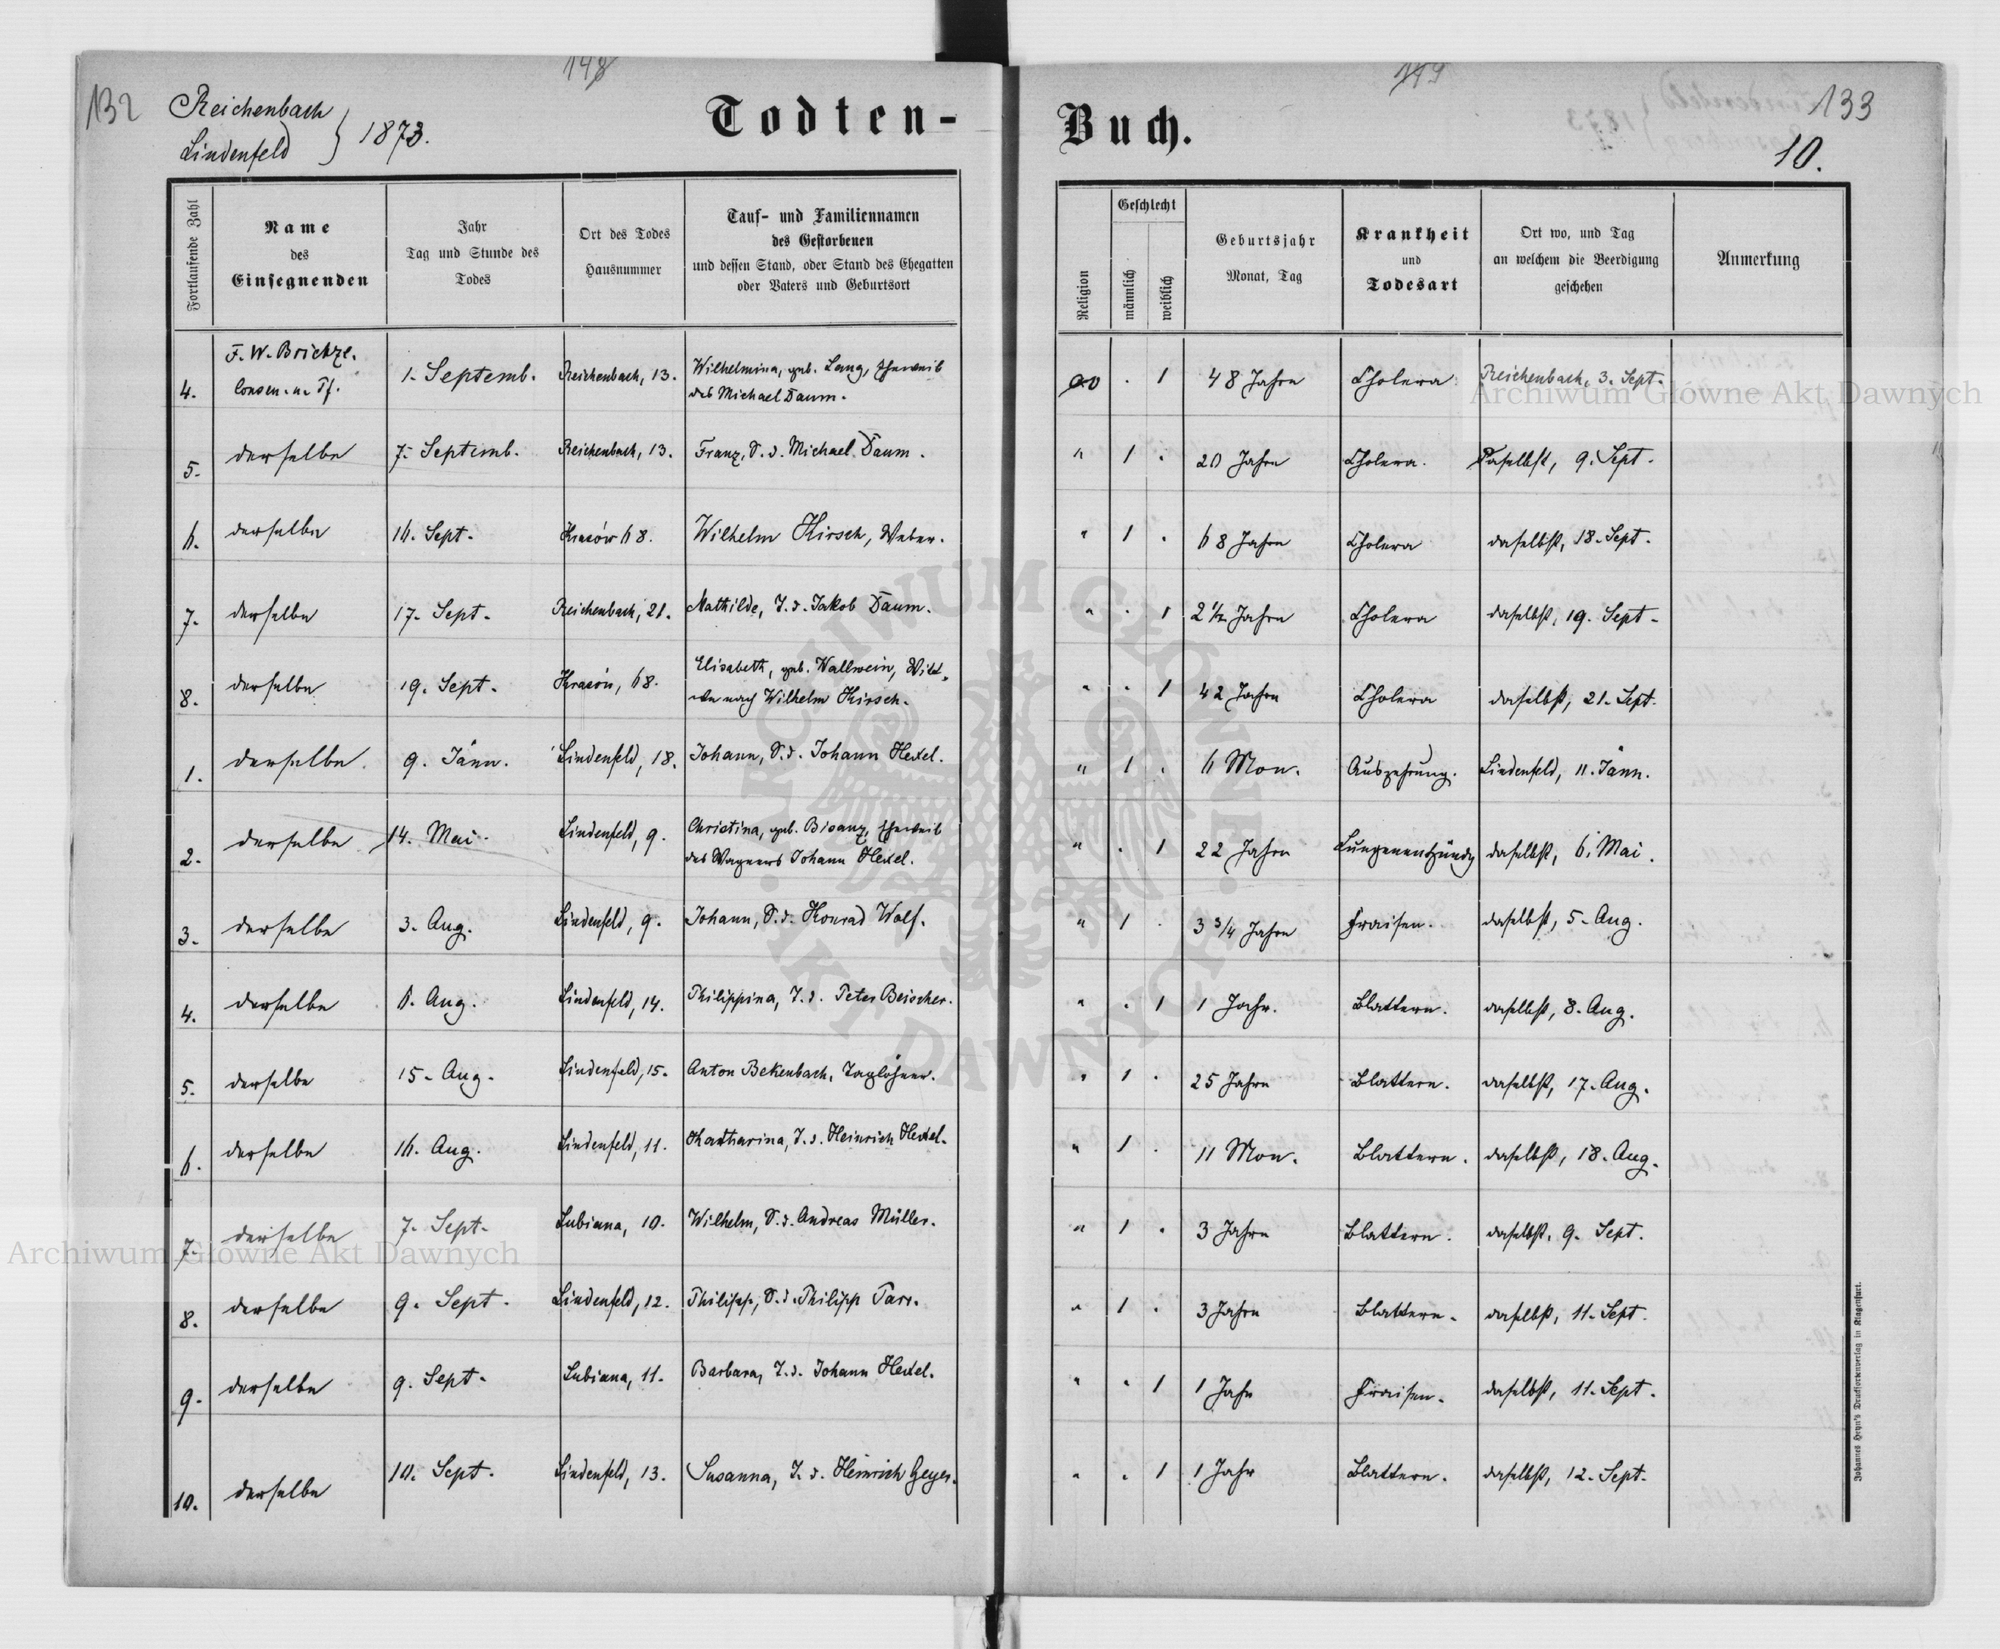 132
148
149
133
Reichenbach
Lindenfeld } 1873.
Todten-Buch.
10.
Fortlaufende Zahl
Name
des
Einsegnenden
Jahr
Tag und Stunde des
Todes
Ort des Todes
Hausnummer
Tauf- und Familiennamen
des Gestorbenen
und dessen Stand, oder Stand des Ehegatten
oder Vaters und Geburtsort
Religion
Geschlecht
männlich
weiblich
Geburtsjahr
Monat, Tag
Krankheit
und
Todesart
Ort wo, und Tag
an welchem die Beerdigung
geschehen
Anmerkung
F. W. Brietze.
4. Consen. u. Pf. 1. Septemb. Reichenbach, 13. Wilhelmina, geb. Lang, Eheweib
des Michael Daum. . 1 48 Jahre Cholera Reichenbach, 3. Sept.
5. derselbe 7. Septemb. Reichenbach, 13. Franz, S. d. Michael Daum. " 1 . 20 Jahre Cholera. Daselbst, 9. Sept.
6. derselbe 16. Sept. Krasów 68. Wilhelm Hirsch, Weber. " 1 . 68 Jahre Cholera daselbst, 18. Sept.
7. derselbe 17. Sept. Reichenbach, 21. Mathilde, T. d. Jakob Daum. " . 1 2 1/2 Jahre Cholera daselbst, 19. Sept.
8. derselbe 19. Sept. Krasów, 68. Elisabeth, geb. Wallwein, Witt-
we nach Wilhelm Hirsch. " . 1 42 Jahre Cholera daselbst, 21. Sept.
1. derselbe 9. Jänn. Lindenfeld, 18. Johann, S. d. Johann Hexel. " 1 . 6 Mon. Auszehrung. Lindenfeld, 11. Jänn.
2. derselbe 14. Mai Lindenfeld, 9. Christina, geb. Bisanz, Eheweib
des Wagners Johann Hexel. " . 1 22 Jahre Lungenentzündg daselbst, 6. Mai.
3. derselbe 3. Aug. Lindenfeld, 9. Johann, S. d. Konrad Wolf. " 1 . 3 3/4 Jahre Fraisen. daselbst, 5. Aug.
4. derselbe 6. Aug. Lindenfeld, 14. Philippina, T. d. Peter Beischer. " . 1 1 Jahr. Blattern. daselbst, 8. Aug.
5. derselbe 15. Aug. Lindenfeld, 15. Anton Bekenbach, Taglöhner. " 1 . 25 Jahre Blattern. daselbst, 17. Aug.
6. derselbe 16. Aug. Lindenfeld, 11. Katharina, T. d. Heinrich Hexel. " 1 . 11 Mon. Blattern. daselbst, 18. Aug.
7. derselbe 7. Sept. Lubiana, 10. Wilhelm, S. d. Andreas Müller. " 1 . 3 Jahre Blattern. daselbst, 9. Sept.
8. derselbe 9. Sept. Lindenfeld, 12. Philipp, S. d. Philipp Parr. " 1 . 3 Jahre Blattern. daselbst, 11. Sept.
9. derselbe 9. Sept. Lubiana, 11. Barbara, T. d. Johann Hexel. " . 1 1 Jahr Fraisen. daselbst, 11. Sept.
10. derselbe 10. Sept. Lindenfeld, 13. Susanna, T. d. Heinrich Geyer. " . 1 1 Jahr Blattern. daselbst, 12. Sept.
Johannes Heyn's Drucksortenverlag in Klagenfurt.
Archiwum Główne Akt Dawnych
Archiwum Główne Akt Dawnych
ARCHIWUM GŁÓWNE · AKT DAWNYCH ·